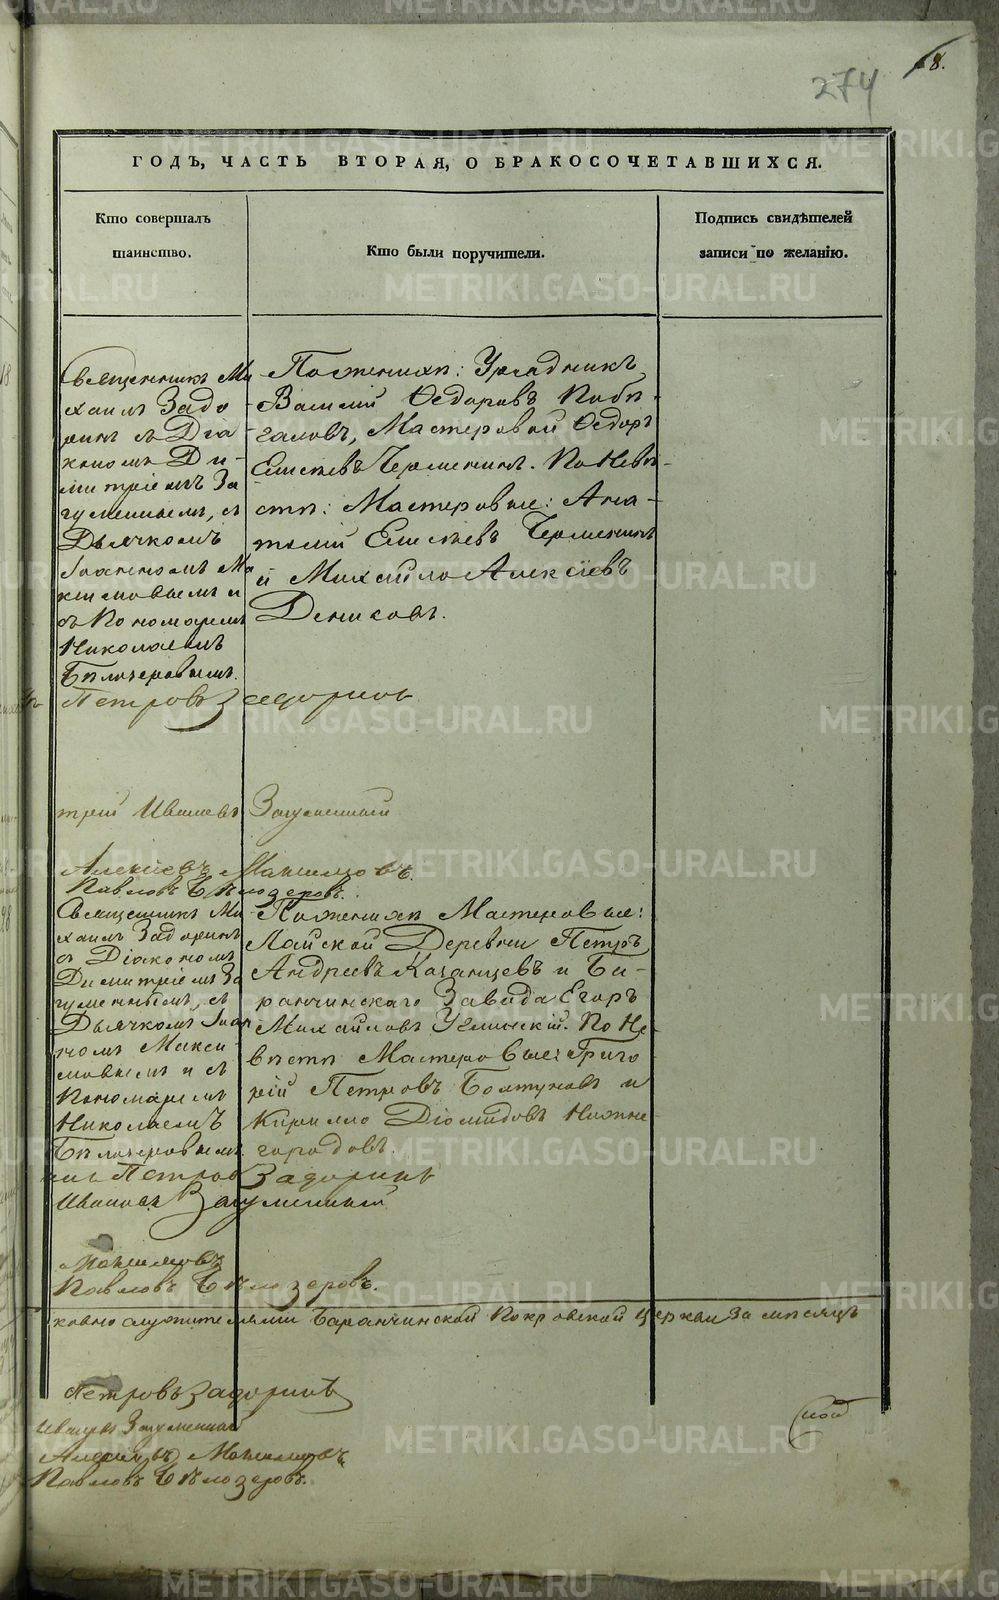 8.
274
ГОДЪ, ЧАСТЬ ВТОРАЯ, О БРАКОСОЧЕТАВШИХСЯ.
Кто совершалъ
таинство.
Кто были поручители.
Подпись свидѣтелей
записи по желанію.
Священникъ Ми
хаилъ Задо
ринъ съ Діа
кономъ Ди-
митріемъ За
гуменнымъ, съ
Дьячкомъ
Іоанномъ Ма
ксимовымъ и
съ Пономаремъ
Николаемъ
Бѣлозеровымъ.
По женихѣ: Урядникъ
Василій Ѳедоровъ
Мастеровой Ѳедоръ
Елисѣевъ Черменинъ. По Невѣ-
стѣ: Мастеровые: Ана-
толій Елисѣевъ Черменинъ
и Михайло Алексѣевъ
Денисовъ.
Петровъ Задоринъ
трій Ивановъ Загуменный
Алексѣевъ Максимовъ.
Павловъ Бѣлозеровъ.
Священникъ Ми
хаилъ Задоринъ
съ Діакономъ
Димитріемъ За
гуменнымъ, съ
Дьячкомъ Іоан
номъ Макси-
мовымъ и съ
Пономаремъ
Николаемъ
Бѣлозеровымъ.
По женихѣ Мастеровые:
Лайской Деревни Петръ
Андреевъ Казанцевъ и Ба-
ранчинскаго Завода Егоръ
Михайловъ Углинскій. По Не
вѣстѣ Мастеровые: Григо
рій Петровъ Болтуновъ и
Кирилло Діомидовъ Нижне
городовъ.
Петровъ Задоринъ
Ивановъ Загуменный
Максимовъ
Павловъ Бѣлозеровъ.
ковнослужителями Баранчинской Покровской церкви за мѣсяцъ
Петровъ Задоринъ
Ивановъ Загуменный
Алексѣевъ Максимовъ
Павловъ Бѣлозеровъ.
METRIKI.GASO-URAL.RU